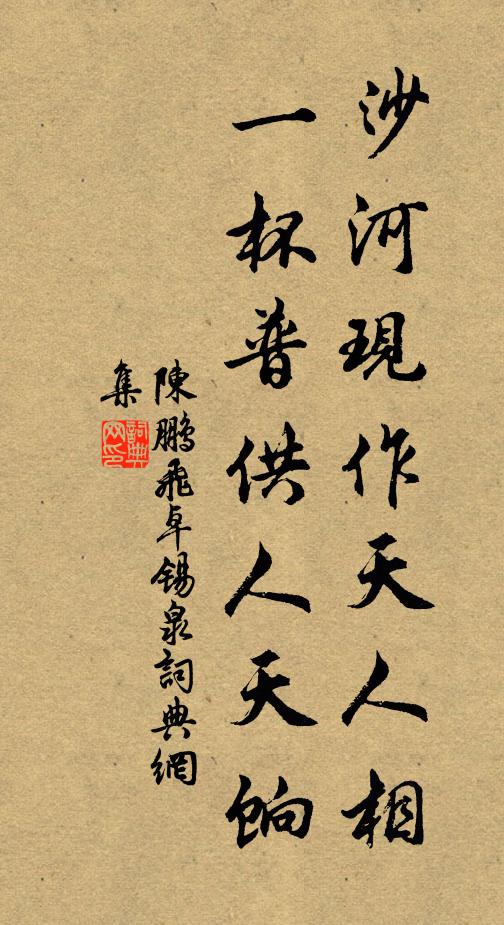 沙河現作天人相
一杯普供人天餉
陳鵬飛卓錫泉詞典網
集
詞典
网印